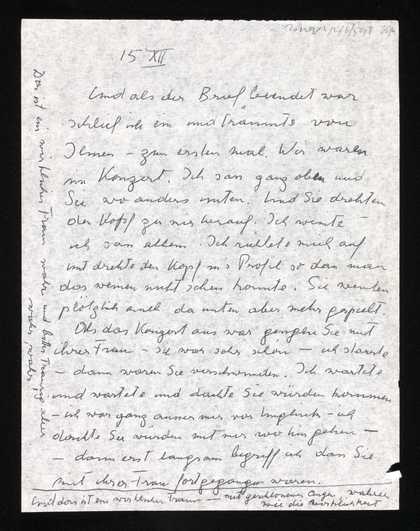 15 XII
Und als der Brief beendet war
schlief ich ein und träumte von
Ihnen - zum ersten mal. Wir waren
im Konzert. Ich sass ganz oben und
Sie wo anders unten. Und Sie drehten
den Kopf zu mir herauf. Ich weinte
ich sass allein. Ich richtete mich auf
und drehte den Kopf ins Profil so dass man
das weinen nicht sehen konnte. Sie weinten
plötzlich auch da unten aber mehr
Als das Konzert aus war gingen Sie mit
ihrer Frau - Sie war sehr schön - ich starrte
- dann waren Sie verschwunden. Ich wartete
und wartete und dachte Sie würden kommen
- ich war ganz ausser mir vor Unglück - ich
dachte Sie würden mit mir wo hin gehen -
- dann erst langsam begriff ich dass Sie
mit ihrer Frau fortgegangen waren.
Und das ist ein wirklicher Traum - mit geschlossenen Augen wahrer
wie die Wirklichkeit
Das ist ein wirklicher Traum wahr, und kein Traum aber
wahr, wahr